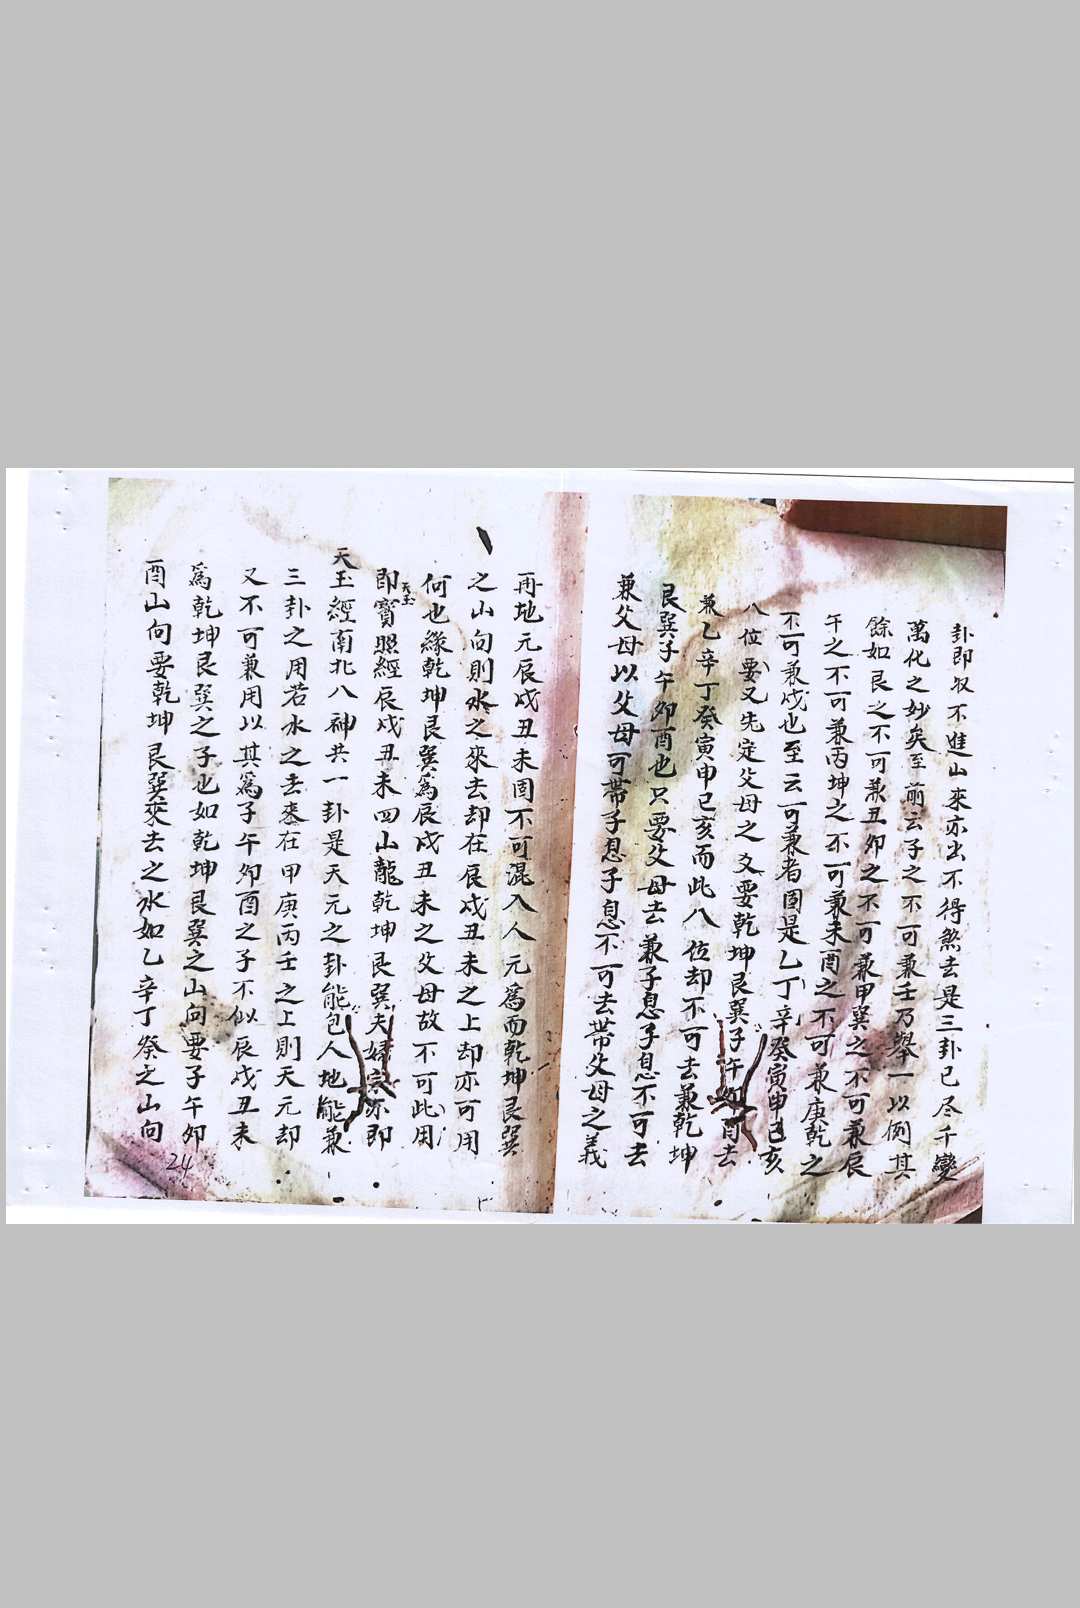 卦即収不進山來亦出不得煞去是三卦已尽千變
萬化之妙矣至前云子之不可兼壬乃舉一以例其
餘如艮之不可兼丑卯之不可兼甲巽之不可兼辰
午之不可兼丙坤之不可兼未酉之不可兼庚乾之
不可兼戌也至云可兼者固是乙丁辛癸寅申巳亥
八位要又先定父母之爻要乾坤艮巽子午卯酉去
兼乙辛丁癸寅申巳亥而此八位却不可去兼乾坤
艮巽子午卯酉也只要父母去兼子息子息不可去
兼父母以父母可帶子息子息不可去帶父母之義
再地元辰戌丑未固不可混入人元為而乾坤艮巽
之山向則水之來去却在辰戌丑未之上却亦可用
何也緣乾坤艮巽為辰戌丑未之父母故不可此用
天玉
即寳照經辰戌丑未四山龍乾坤艮巽夫婦宗亦即
天玉經南北八神共一卦是天元之卦能包人地能兼
三卦之用若水之去來在甲庚丙壬之上則天元却
又不可兼用以其為子午卯酉之子不似辰戌丑未
為乾坤艮巽之子也如乾坤艮巽之山向要子午卯
酉山向要乾坤艮巽來去之水如乙辛丁癸之山向
24